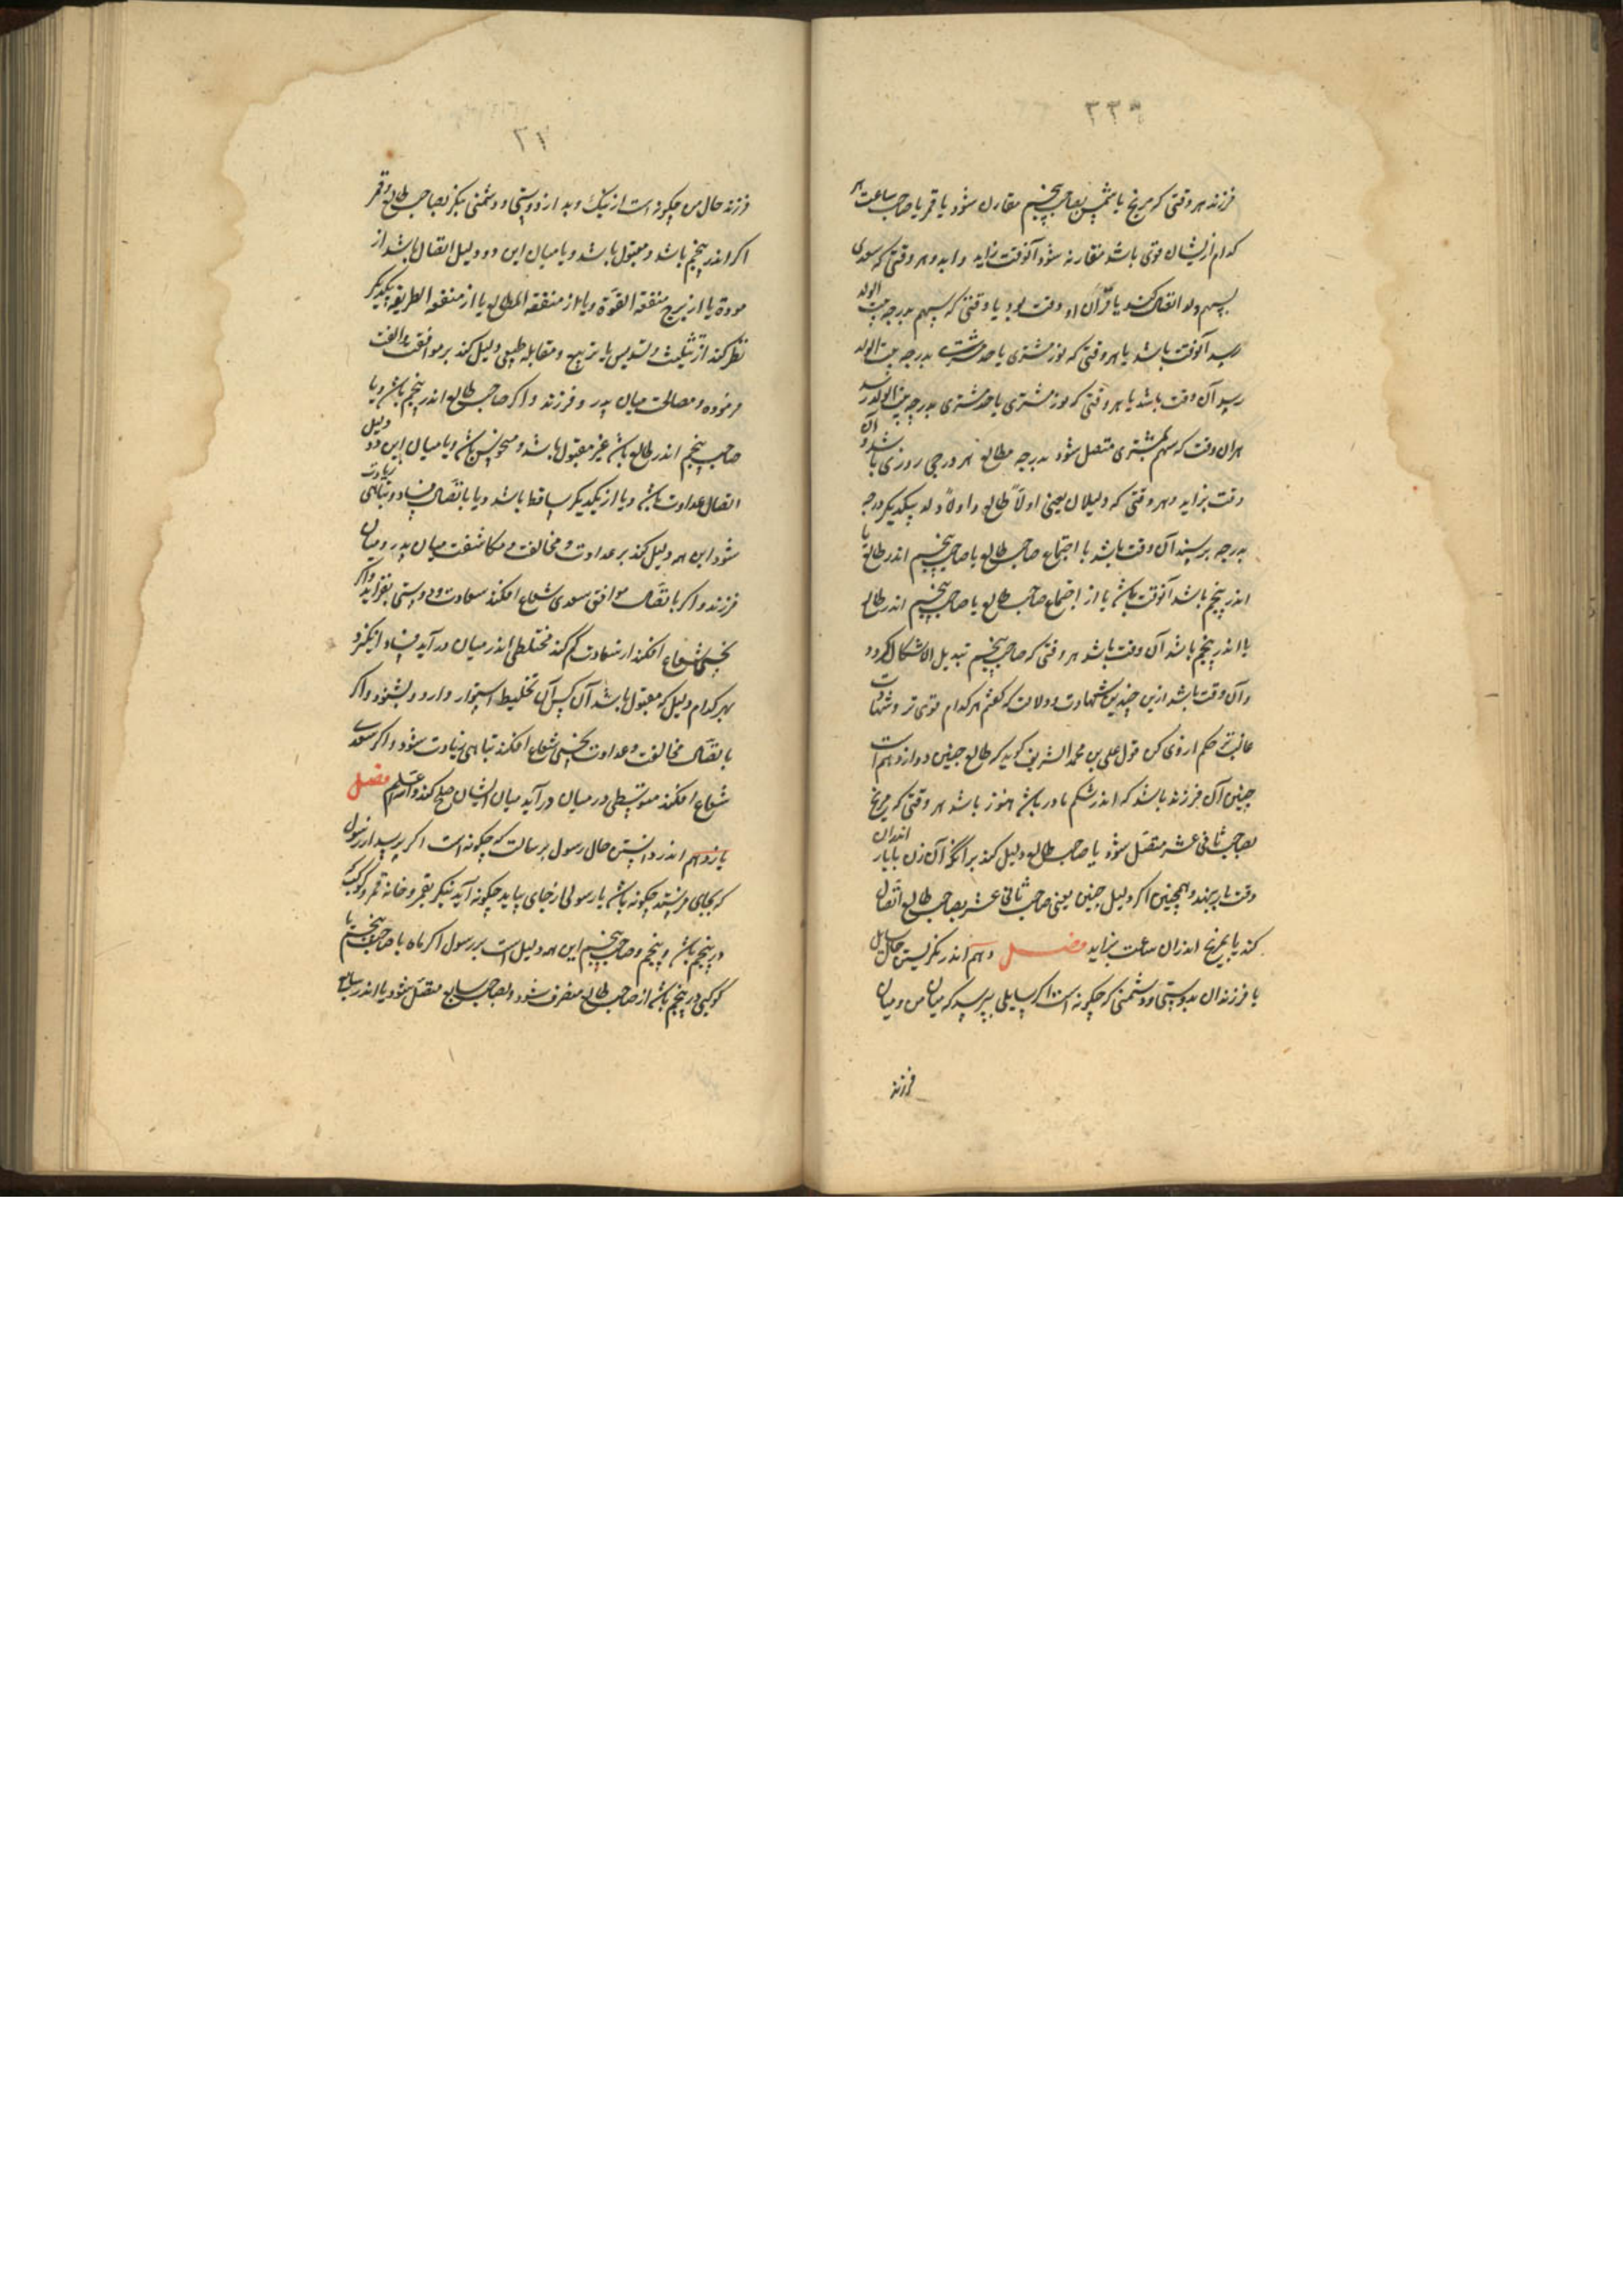 ۲۳۹
فرزند هر وقتی که مریخ یا شمس بصاحب پنجم مقارن شود یا قمر یا صاحب ساعت هر
کدام ازیشان قوی باشد مقارنه شود آنوقت بزاید و هر وقتی که سعدی
بسهم ولد اتصال کند یا قران او وقت بود یا وقتی که سهم بدرجه بیت الولد
رسد آنوقت باشد یا هر وقتی که نور مشتری یا حد مشتری بدرجه بیت الولد
رسد آن وقت باشد یا هر وقتی که نور مشتری یا حد مشتری بدرجه بیت الولد رسد
هران وقت که سهم بمشتری متصل شود بدرجه مطالع هر درجی روزی باشد و آن
وقت بزاید و هر وقتی که دلیلان یعنی اولاً طالع و اولاً ولد بیکدیگر درجه
بدرجه برسند آن وقت باشد با اجتماع صاحب طالع با صاحب پنجم اندر طالع یا
اندر پنجم باشد آنوقت باشد یا از اجتماع صاحب طالع با صاحب پنجم اندر طالع
یا اندر پنجم باشد آن وقت باشد هر وقتی که صاحب پنجم تبدیل الاشکال کردد
و آن وقت باشد ازین چندین شهادت و دلالت که گفتم هر کدام قوی تر و شهادت
غالبتر حکم از وی کن قول علی بن محمد الشریف گوید که طالع جنین دوازدهم است
جنین آن فرزند باشد که اندر شکم مادر باشد هنوز باشد هر وقتی که مریخ
بصاحب ثانی عشر متصل شود یا صاحب طالع دلیل کند بر آنکه آن زن بار اندران
وقت بنهد و همچنین اگر دلیل جنین یعنی صاحب ثانی عشر بصاحب طالع اتصال
کند یا بمریخ اندران ساعت بزاید فصل دهم اندر نگریستن حال سایل
با فرزندان بدوستی و دشمنی که چگونه است اگر سایلی بپرسد که میان من و میان
فرزند
فرزند حال من چگونه است از نیک و بد از دوستی و دشمنی بنگر بصاحب طالع و قمر
اگر اندر پنجم باشد و مقبول باشد و یا میان این دو دلیل اتصال باشد از
مودة یا از برج متفقه القوة و یا از متفقه المطالع یا از متفقه الطریقه بیکدیگر
نظر کند از تثلیث و تسدیس یا تربیع و مقابله طبیعی دلیل کند بر موافقت و الفت
و مصالحت میان پدر و فرزند و اگر صاحب طالع اندر پنجم باشد و یا
صاحب پنجم اندر طالع باشد غیر مقبول باشد و منحوس باشد و یا میان این دو دلیل
اتصال عداوت باشد و یا از یکدیگر ساقط باشد و یا باتصال فساد و تباهی زیادت
شود این همه دلیل کند بر عداوت و مخالفت و مکاشفت میان پدر و میان
فرزند و اگر باتصال موافق سعدی شعاع افکند سعادت و دوستی بفزاید و اگر
نحسی شعاع افکند از سعادت کم کند مختلطی اندر میان در آید
بهر کدام دلیل که مقبول باشد آن کس آن تخلیط استوار دارد و بشنود و اگر
باتصال مخالفت و عداوت نحسی شعاع افکند تباهی زیادت شود و اگر سعدی
شعاع افکند متوسطی در میان در آید میان ایشان صلح کند والله اعلم فصل
یازدهم اندر دانستن حال رسول و رسالت که چگونه است اگر پرسد از رسول
که بجای فرستد چگونه باشد یا رسولی از جای بیاید چگونه آید بنگر بقمر و خانه قمر و کوکب که
در پنجم باشد و پنجم و صاحب پنجم این همه دلیل است بر رسول اگر ماه یا صاحب پنجم یا
کوکبی در پنجم باشد از صاحب طالع منصرف شود و بصاحب سابع متصل شود یا اندر سابع